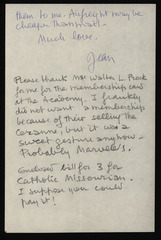 them to me. Airfreight may be
cheaper than mail.
Much love.
Jean
Please thank Mrs Walter L. Pfack
for me for the membership card
at the Academy. I frankly
did not want a membership
because of their selling the
Cezanne, but it was a
sweet gesture anyhow -
Probably Manuel's.
Enclosed bill for 3 for
Catholic Missourian.
I suppose you could
pay it!